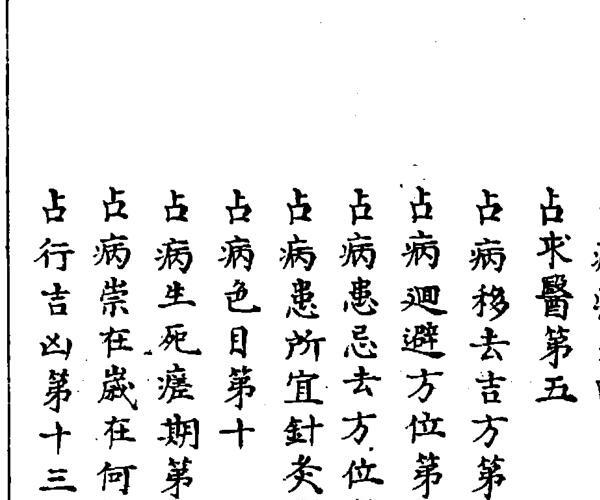 占求醫第五
占病移去吉方第
占病迴避方位第
占病患忌去方位
占病患所宜針灸
占病色目第十
占病生死瘥期第
占病祟在歲在何
占行吉凶第十三